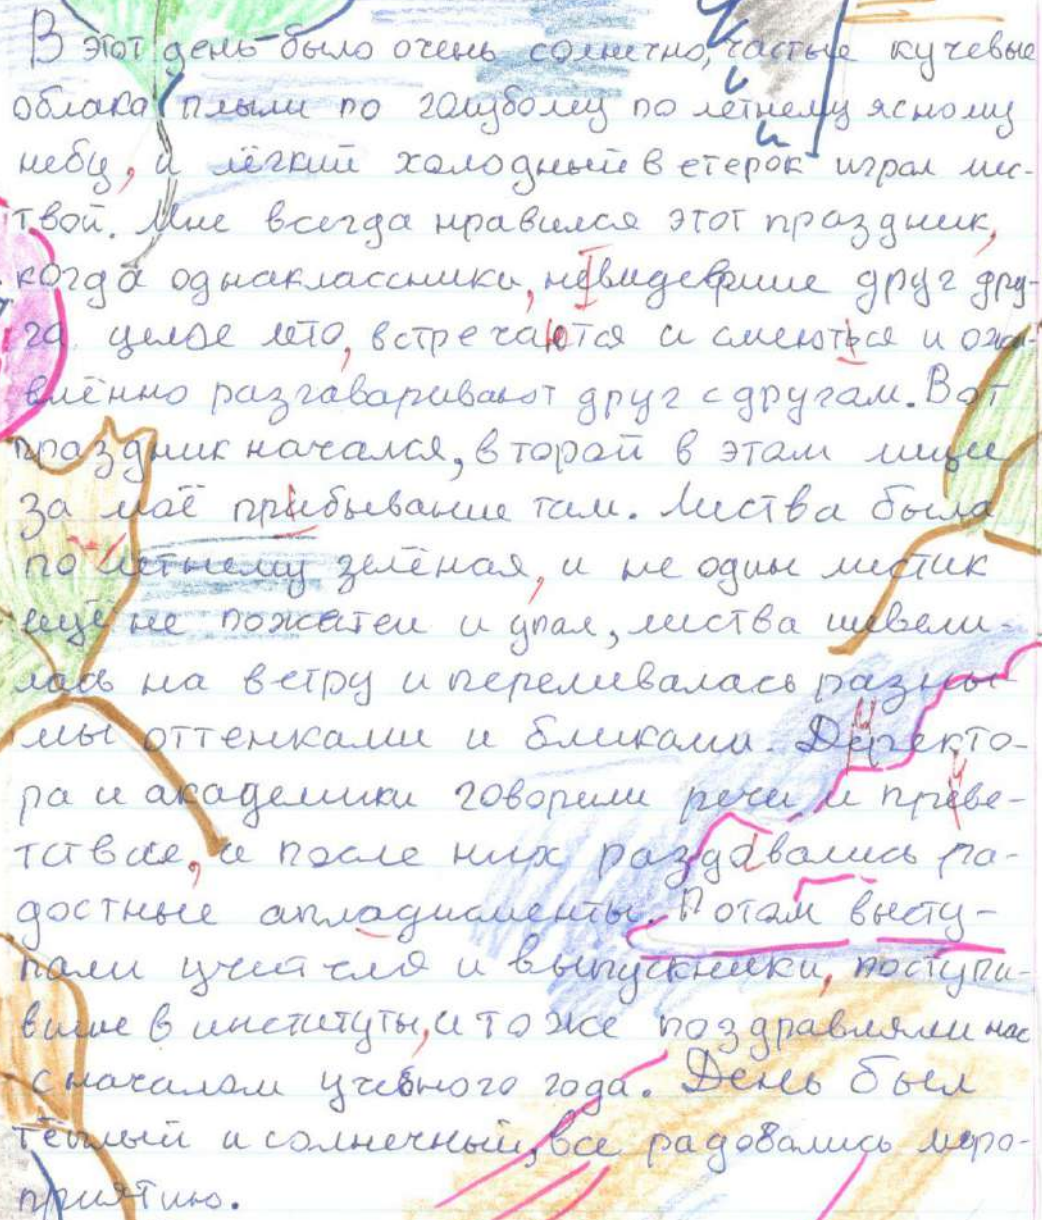 В этот день было очень солнечно, частые кучевые
облака плыли по голубому по летнему ясному
небу, и лёгкий холодный ветерок играл лис-
твой. Мне всегда нравился этот праздник,
когда однаклассники, невидевшие друг дру-
га целое лето, встречаются и смеються и ожи-
влённо разговаривают друг с другам. Вот
праздник начался, второй в этом лицее
за моё прибывание там. Листва была
по летнему зелёная, и не один листик
ещё не пожелтел и упал, листва шевели-
лась на ветру и переливалась разны-
мы оттенками и бликами. Директо-
ра и академики говорили речи и приве-
тствия, и после них раздавались ра-
достные апладисменты. Потом высту-
пали учителя и выпускники, поступи-
вшие в институты, и тоже поздравляли нас
с началом учебного года. День был
тёплый и солнечный, все радовались меро-
приятию.